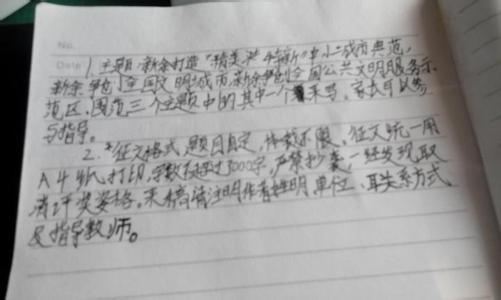 No.
Date 1.主题:新余打造"精美 特新"中小城市典范,
新余争创全国文明城市,新余争创全国公共文明服务示
范区,围范三个主题中的其中一个来写,家长可以参
与指导。
2.*征文格式 题目自定,体裁不限,征文统一用
A4纸打印,字数不超过3000字,严禁抄袭一经发现取
消评奖资格。来稿请注明作者姓明、单位、联系方式
及指导教师。